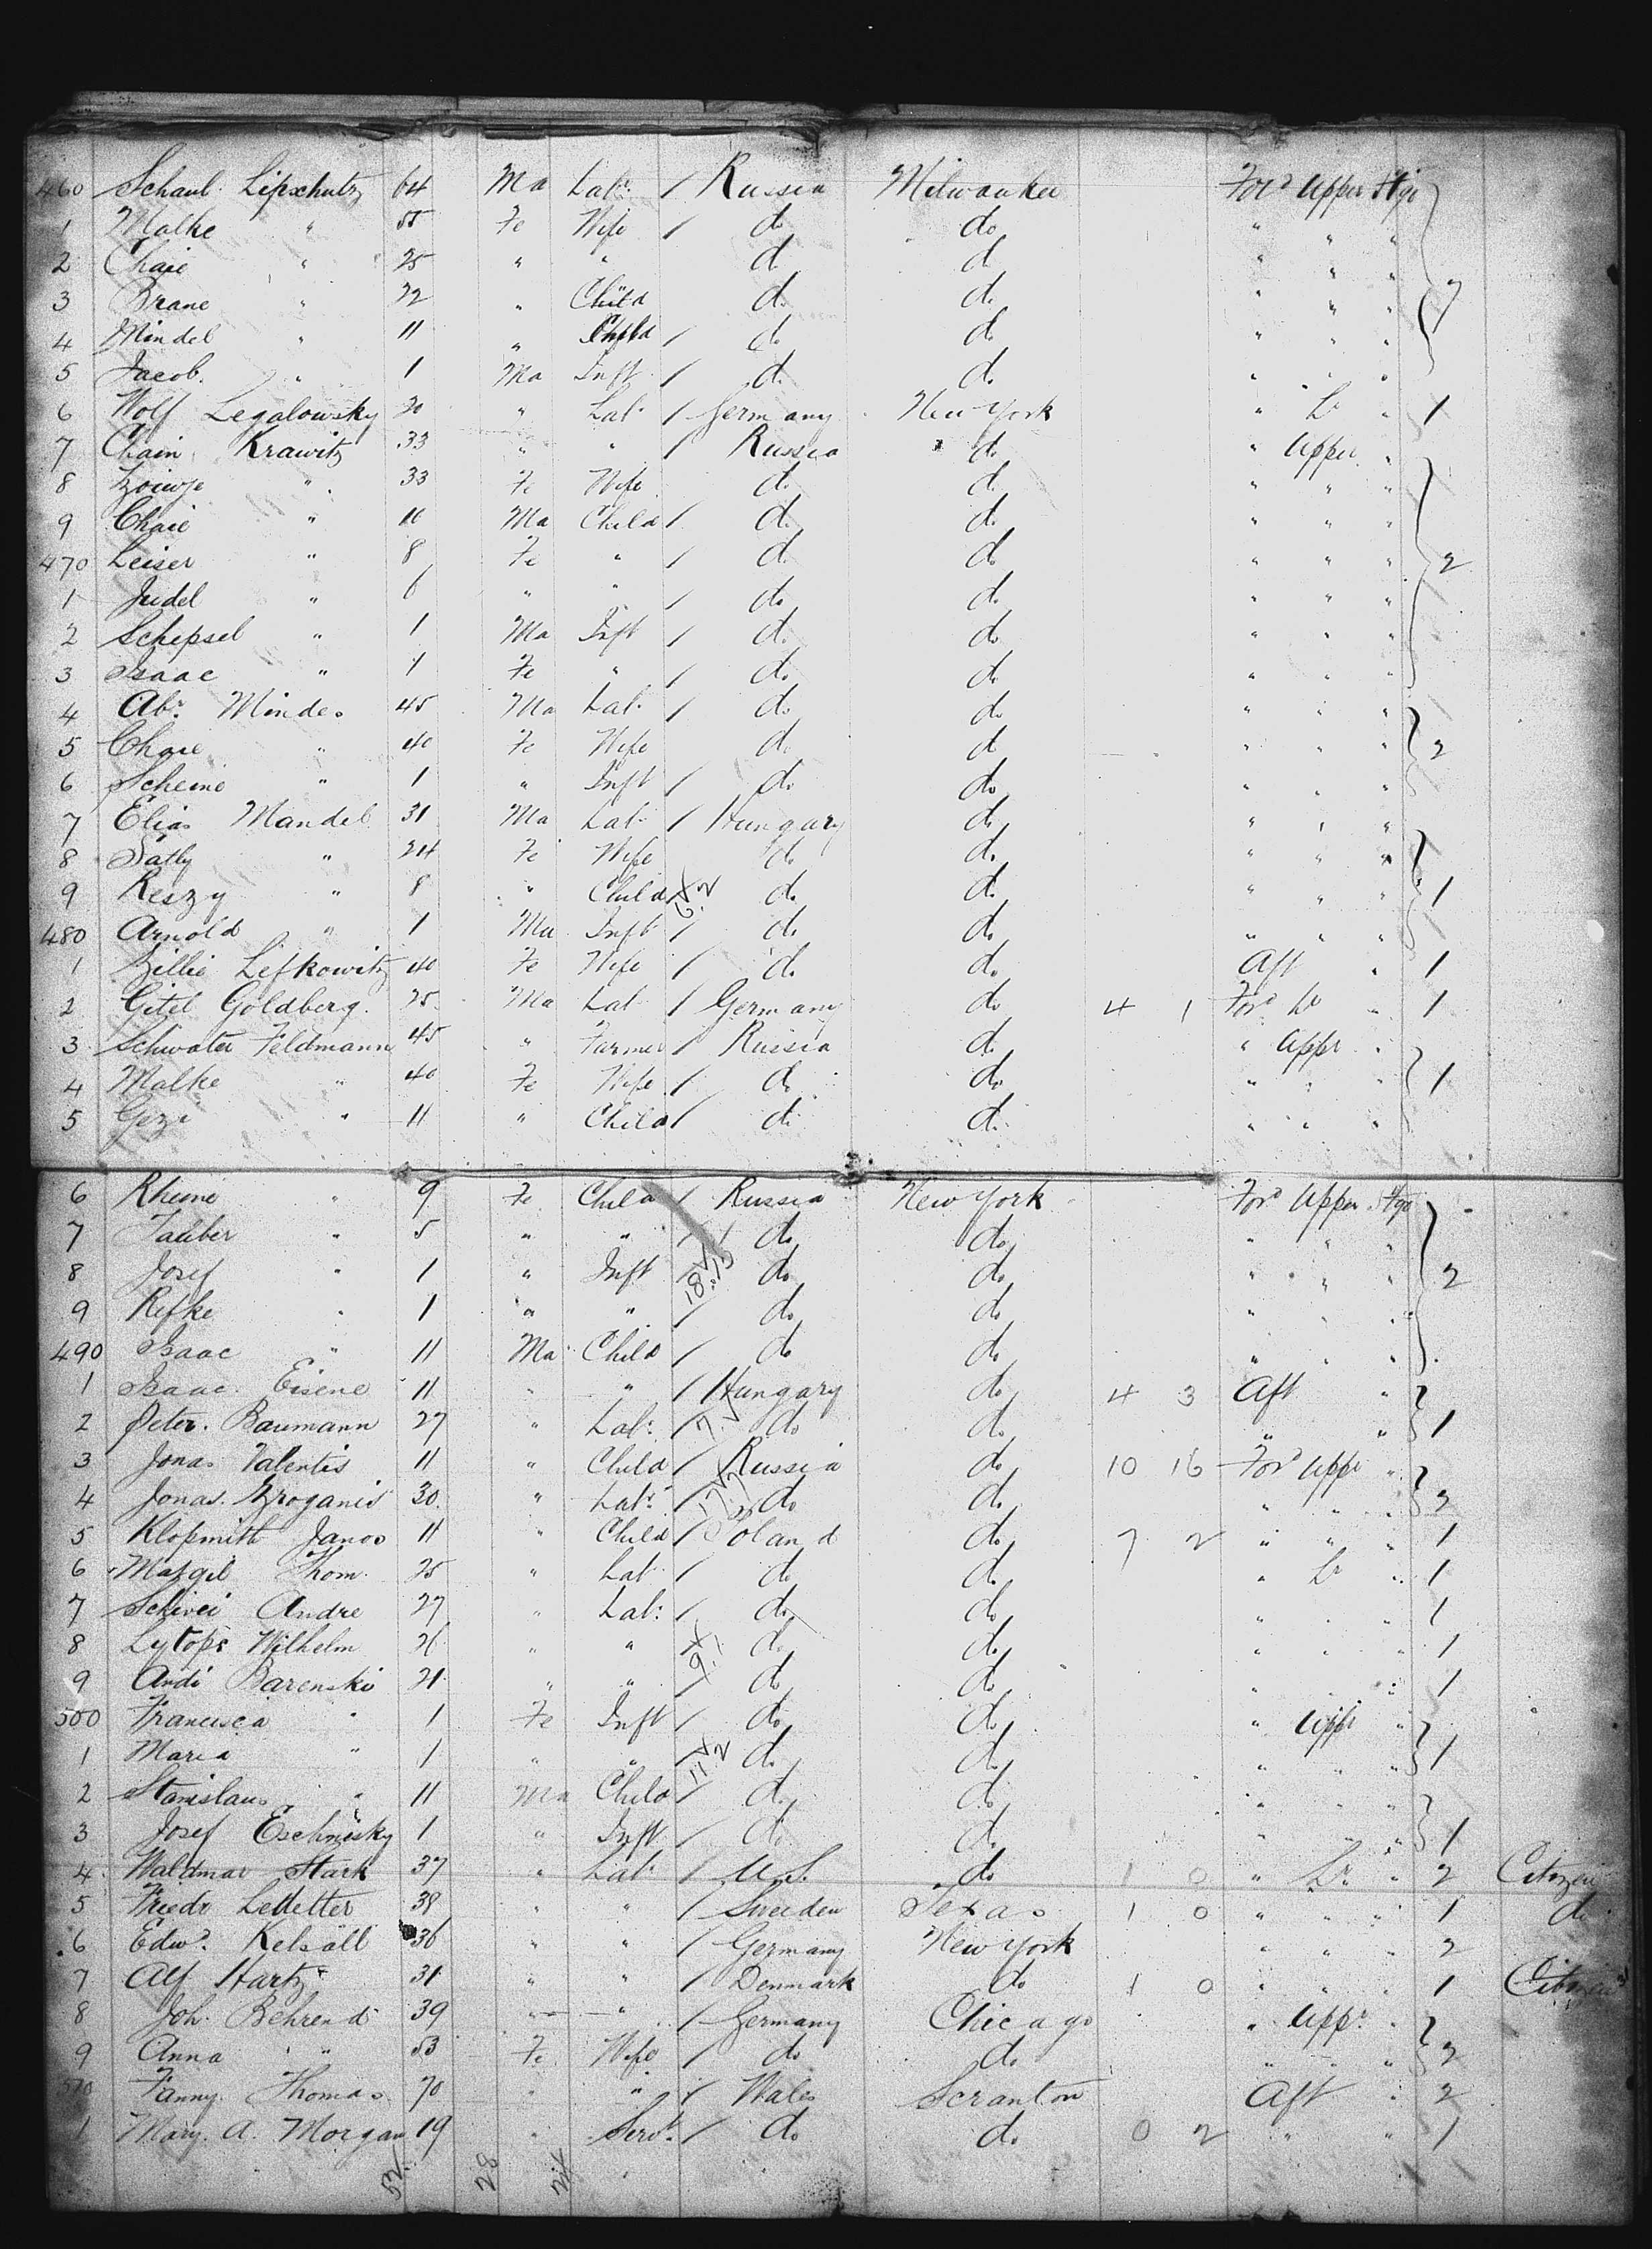 460 Schaul Lipschutz 64 Ma Labr / Russia Milwaukee Ford Upper Stge
1 Malke " 55 Fe Wife / do do " " "
2 Chaie " 25 " " do do " " "
3 Brane " 22 " Child do do " " " 7
4 Mindel " 11 " Child / do do " " "
5 Jacob " 1 Ma Inft / do do " " "
6 Wolf Legalowsky 30 " Labr / Germany New York " Lr " 1
7 Chain Krawitz 33 " " / Russia do " Upper "
8 " 33 Fe Wife do do " " "
9 Chaie " Ma Child / do do " " "
470 Leiser " 8 Fe " / do do " " " 2
1 Judel " 6 " " / do do " " "
2 Schepsel " 1 Ma Inft / do do " " "
3 Isaac " 1 Fe " / do do " " "
4 Abr Mindes 45 Ma Labr / do do " " "
5 Chaie " 40 Fe Wife do do " " " 2
6 Scheine " 1 " Inft / do do " " "
7 Elias Mandel 31 Ma Labr / Hungary do " " "
8 " 24 Fe Wife do do " " "
9 Reszy " 8 " Child 6.2 do do " " " 1
480 Arnold " 1 Ma Inft / do do " " "
1 Zillie Lefkowitz 40 Fe Wife / do do Aft " 1
2 Gitel Goldberg 25 Ma Labr / Germany do 4 1 Ford Lr " 1
3 Schwater Feldmann 45 " Farmer / Russia do " Uppr "
4 Malke " 40 Fe Wife / do do " " " 1
5 Gezi " 11 " Child / do do " " "
6 Rheine " 9 Fe Child / Russia New York Ford Upper Stge
7 Tauber " 5 " " / do do " " "
8 Josef " 1 " Inft / 18.15 do do " " " 2
9 Refke " 1 " " / do do " " "
490 Isaac " 11 Ma Child / do do " " "
1 Isaac Eisene 11 " " / Hungary do 4 3 Aft "
2 Peter Baumann 27 " Labr / 7. do do " " 1
3 Jonas Valentis 11 " Child / Russia do 10 16 Ford Uppr "
4 Jonas 30 " Labr / do do " " " 2
5 Klopmith Janos 11 " Child / Poland do 7 2 " " " 1
6 Matgil Thom 25 " Labr / do do " Lr " 1
7 Schivei Andre 27 " Labr / do do " " " 1
8 Lytops Wilhelm 26 " " 9.1 do do " " " 1
9 Andi Barenski 21 " " / do do " " " 1
500 Francisca " 1 Fe Inft / do do " Uppr "
1 Maria " 1 " " / 11.2 do do " " " 1
2 Stanislaus " 11 Ma Child / do do " " "
3 Josef Eschnesky 1 " Inft / do do " " " 1
4 Waldmar Stark 37 " Labr / U.S. do 1 0 " Lr " 2 Citizen
5 Friedr Ledletter 38 " " / Sweeden Texas 1 0 " " " 1 do
6 Edwd Kelsall 36 " " / Germany New York " " " 2
7 Alf Hartz 31 " " / Denmark do 1 0 " " " 1 Citizen
8 Joh. Behrend 39 " " / Germany Chicago " Uppr "
9 Anna " 53 Fe Wife / do do " " " 2
510 Fanny Thomas 70 " " / Wales Scranton Aft " 2
1 Mary. A. Morgan 19 " Servt / do do 0 2 " " 1
52 28 24